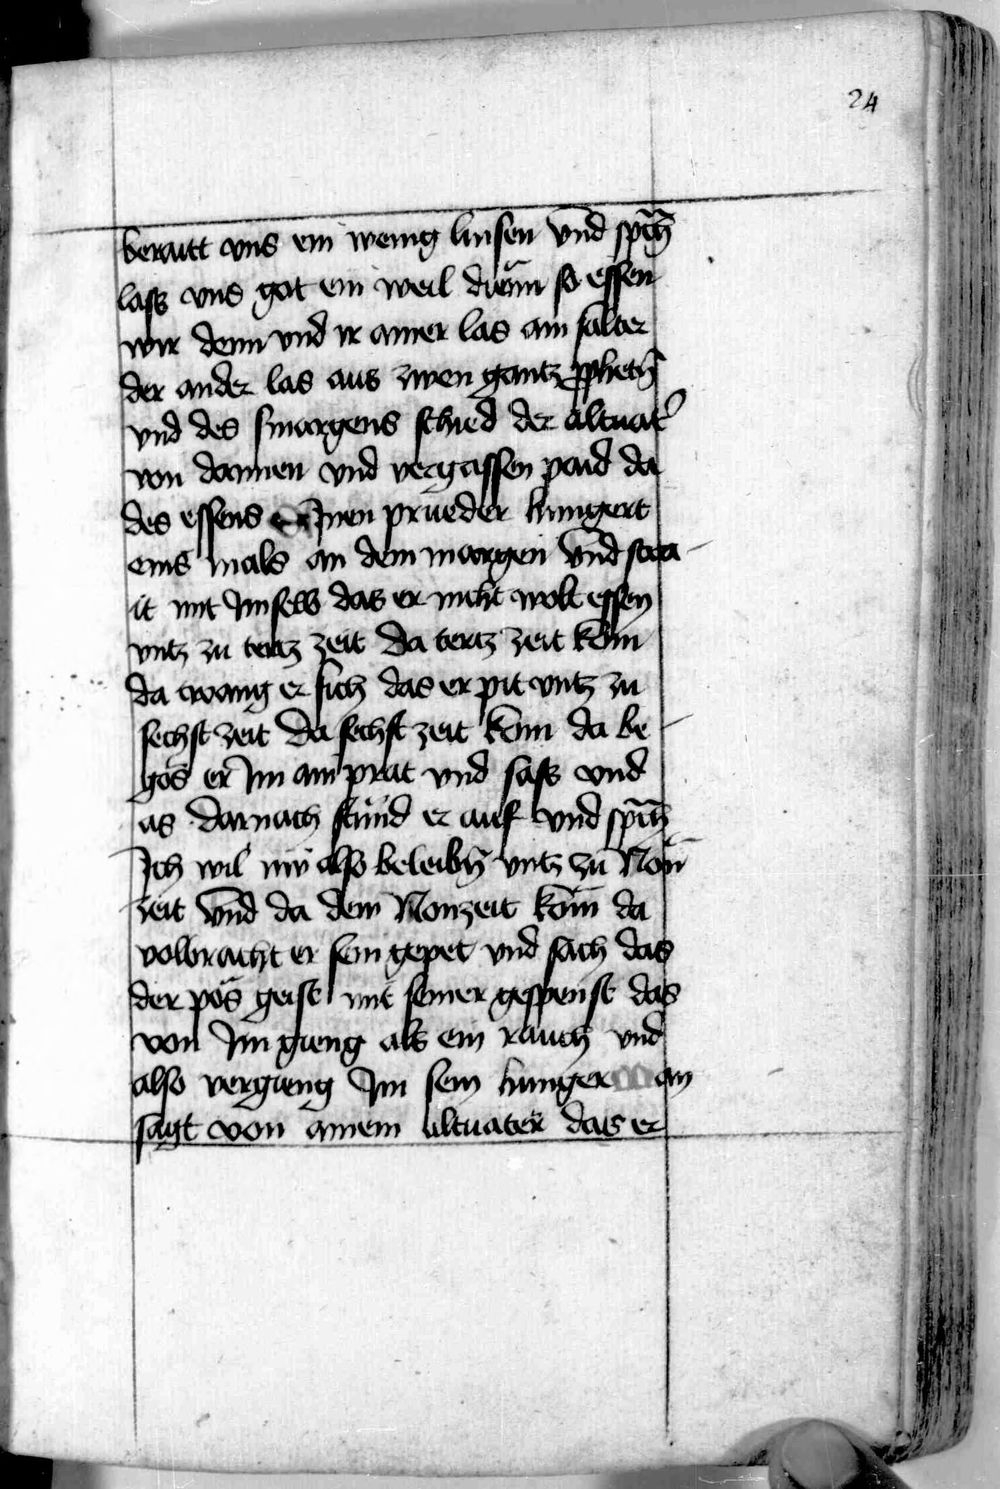 24
beraitt vns ein wenig linsen vnd sprach
lass vns got ein weil dienn so essen
wir denn vnd ir ainer las ain salter
der ander las aus zwen gantz prophetn̄
vnd des smorgens schied der altuat͛
von dannen vnd vergassen paid da
des essens Ainen prueder hungert
eins mals an dem margen vnd stra-
it mit Im selb das er nicht wolt essen
vntz zu tertz zeit da tertz zeit kom
da twang er sich das er pit vntz zu
sechst zeit da sechst zeit kom da be-
gos er Im ain prat vnd sass vnd
as darnach stuͤnd er auf vnd sprach
Ich wil nu also beleibn̄ vntz zu Non
zeit vnd da dem Nonzeit kom da
volbracht er sein gepet vnd sach das
der poͤs geist mit seiner gespenst das
von Im gieng als ein rauch vnd
also vergieng Im sein hunger an
sagt von ainem altuater das er